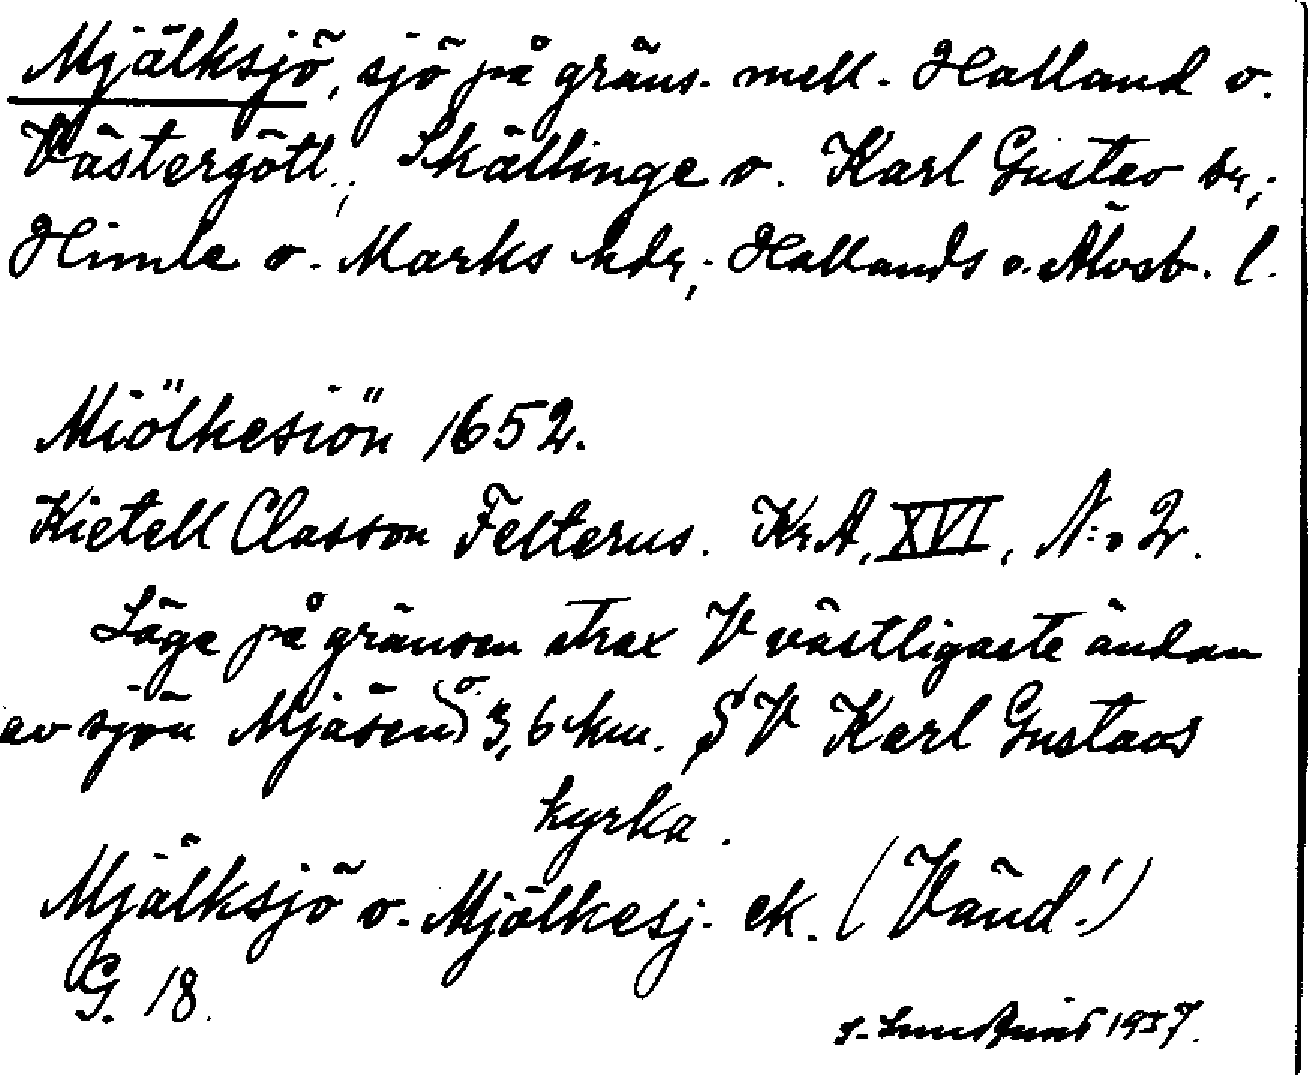 Mjälksjö, sjö på gräns. mell. Halland o.
Västergötl., Skällinge o. Karl Gustav snr,
Himle o. Marks hdr, Hallands o. Älvsb. l.
Miölkesiön 1652.
Kietell Classon Felterus. Kr.A, XVI, N:o 2.
Läge på gränsen strax V västligaste ändan
av sjön Mjäsen o 3,6 km. SV Karl Gustavs
kyrka.
Mjälksjö o. Mjölkesj. ek. (Vänd!)
G. 18.
1937.